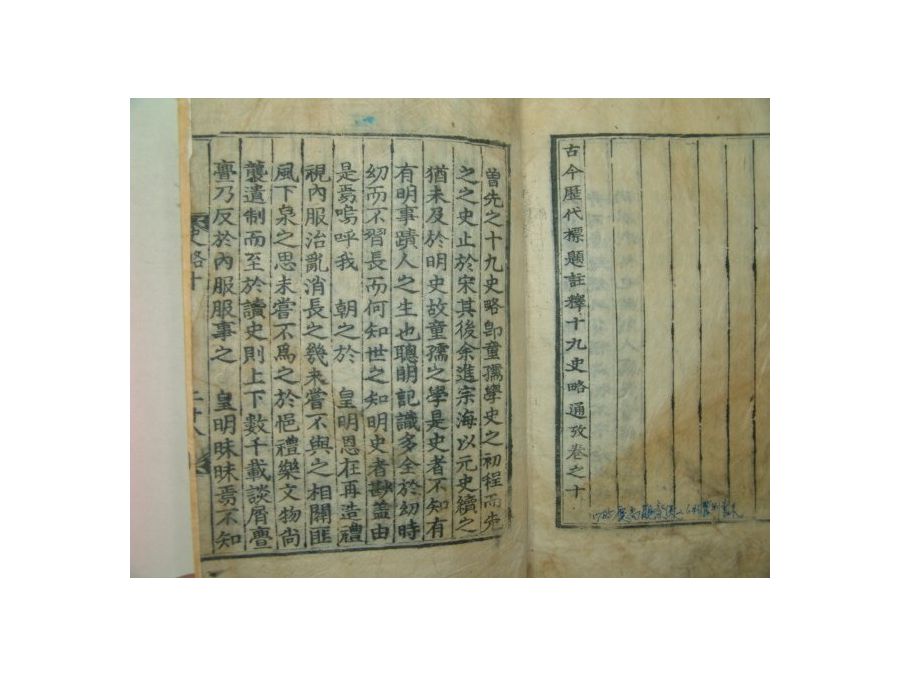 古今歷代標題註釋十九史略通攷卷之十
曾先之十九史略卽童孺學史之初程而先
之之史止於宋其後余進宗海以元史續之
猶未及於明史故童孺之學是史者不知有
有明事蹟人之生也聰明記識多全於幼時
幼而不習長而何知世之知明史者尠盖由
是焉嗚呼我 朝之於 皇明恩在再造禮
視內服治亂消長之幾未嘗不與之相關匪
風下泉之思未嘗不寓之於悒禮樂文物尚
襲遺制而至於讀史則上下數千載談屑亹
亹乃反於內服服事之 皇明昧昧焉不知
史略十
二十八